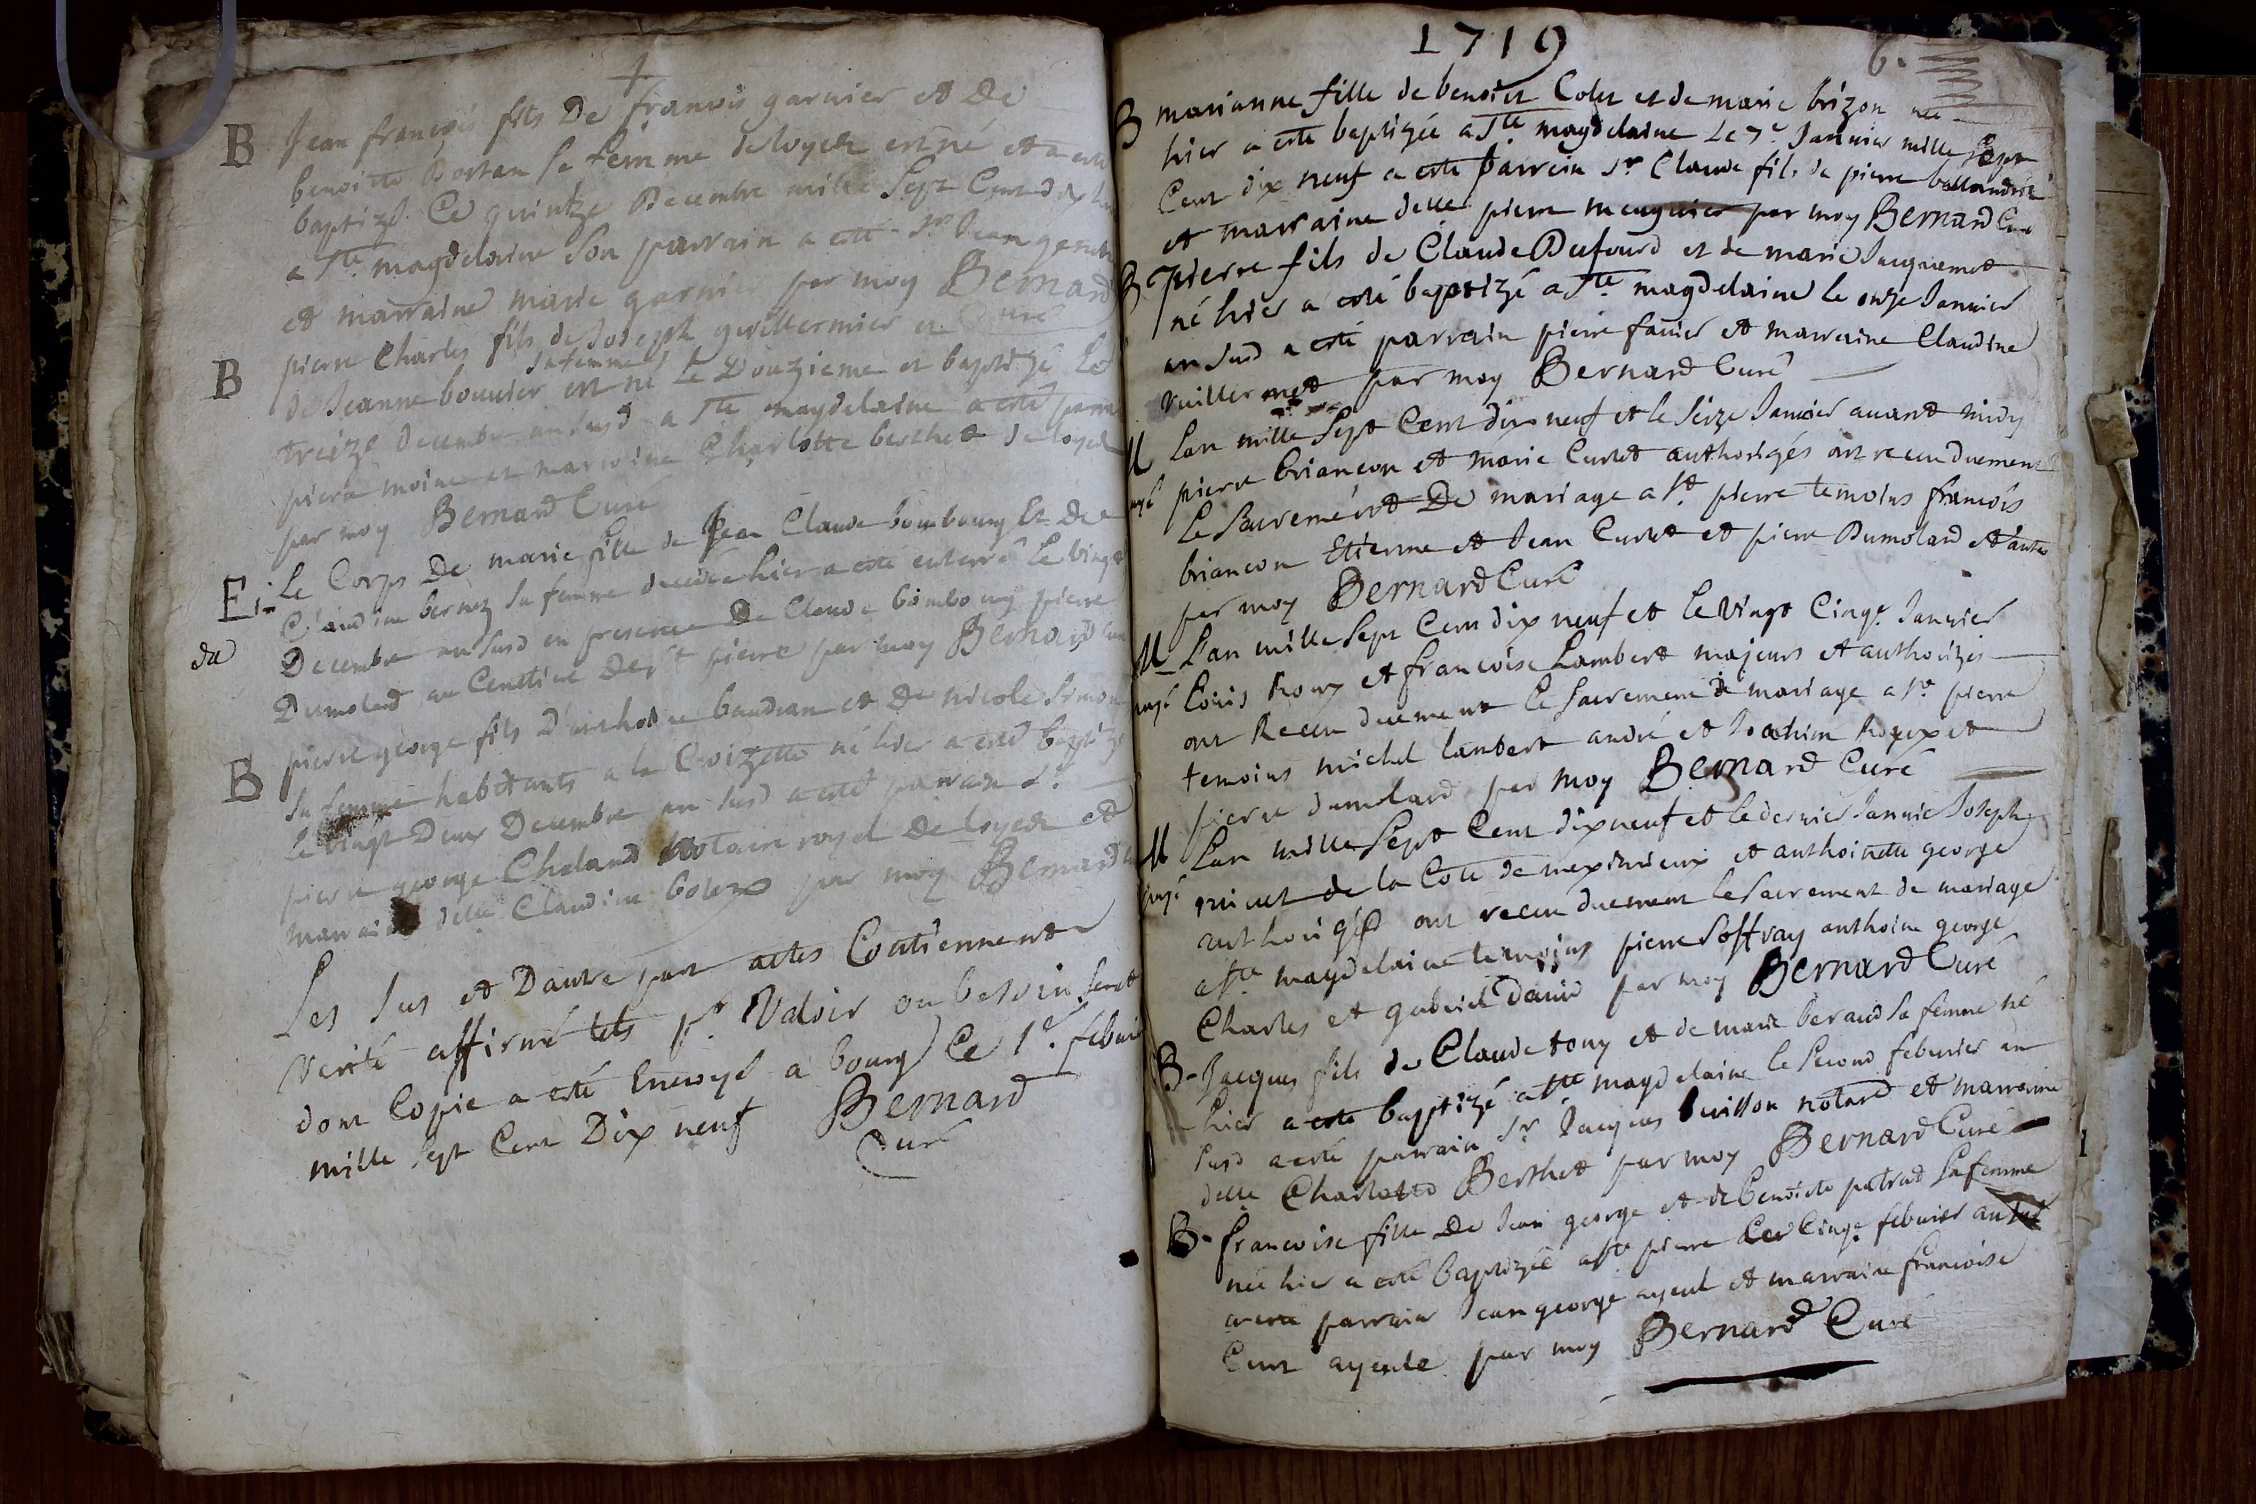 B Jean françois fils De francois garnier et De
benoitte Bortan sa femme de loyes est né et a esté
baptizé Ce quinze Decembre mille Sept Cent dix
a Ste magdelaine Son parrain a esté Sr Jean
et marraine marie garnier par moy Bernard
Curé
B pierre Charles fils de Joseph guillermier et
sa femme
de Jeanne bouvier est né le Douzieme et baptizé le
treize decembre an susd a Ste magdelaine a esté
pierre moine et marraine Charlotte berthet de loyes
par moy Bernard Curé
E Le Corps De marie fille de Jean Claude bombourg Et De
Claudine bernoz sa femme decedée hier a esté enterré Le vingt
Decembre an susd en presence De Claude bombourg pierre
Dumolard au Cemetiere De St pierre par moy Bernard
B pierre george fils D'anthoine baudran et De nicole
sa femme habitants a la Croizette né hier a esté baptizé
le vingt Deux Decembre an susd a esté parrain Sr
pierre george Chaland Notaire royal De loyes et
marraine delle Claudine par moy Bernard
Les sus et Dautre part actes Contiennent
verité affirmé tels pr valoir ou besoin serat
dont Copie a esté Envoyé a bourg Ce 1r. febvrier
mille sept Cent Dix neuf Bernard
Curé
1719
6.
B marianne fille de benoist Colet et de marie brizon née
hier a esté baptizée a Ste magdelaine Le 7e Janvier mille sept
Cent dix neuf a esté parrein Sr Claude fils de pierre
et marraine delle pierre meugnier par moy Bernard Curé
B pierre fils de Claude Dufourd et de marie Jacquemet
né hier a esté baptizé a Ste magdelaine le onze Janvier
an susd a esté parrain pierre favier et marraine Claudine
vuillermet par moy Bernard Curé
M Lan mille Sept Cent dix neuf et le seize Janvier avant midy
pierre briançon et marie Curtet authorizés ont receu duement
Le Sacrement De mariage a St pierre temoins francois
briancon Etienne et Jean Curtet et pierre Dumolard et autre
par moy Bernard Curé
M L'an mille sept Cent dix neuf et le vingt Cinqe. Janvier
Louis Roux et francoise Lambert majeurs et authorizés
ont Receu duement le Sacrement de mariage a St pierre
temoins michel lambert andré et Joachim Roux et
pierre dumolard par moy Bernard Curé
M Lan mille Sept Cent dix neuf et le dernier Janvie Joseph
de la Cote de meximieux et anthoinette george
authorizés ont receu duement le Sacrement de mariage
a Ste magdelaine temoins pierre Soffray anthoine george
Charles et gabriel David par moy Bernard Curé
B - Jacques fils de Claude tony et de marie beraud sa femme né
hier a esté baptizé a Ste magdelaine le Second febvrier an
susd a esté parrain Sr Jacques buisson notaire et marraine
delle Charlotte Berthet par moy Bernard Curé
B - francoise fille De Jean george et de benoiste sa femme
née hier a esté baptizée a St pierre Le Cinqe febvrier an
a esté parrain Jean george ayeul et marraine francoise
Curt ayeule par moy Bernard Curé